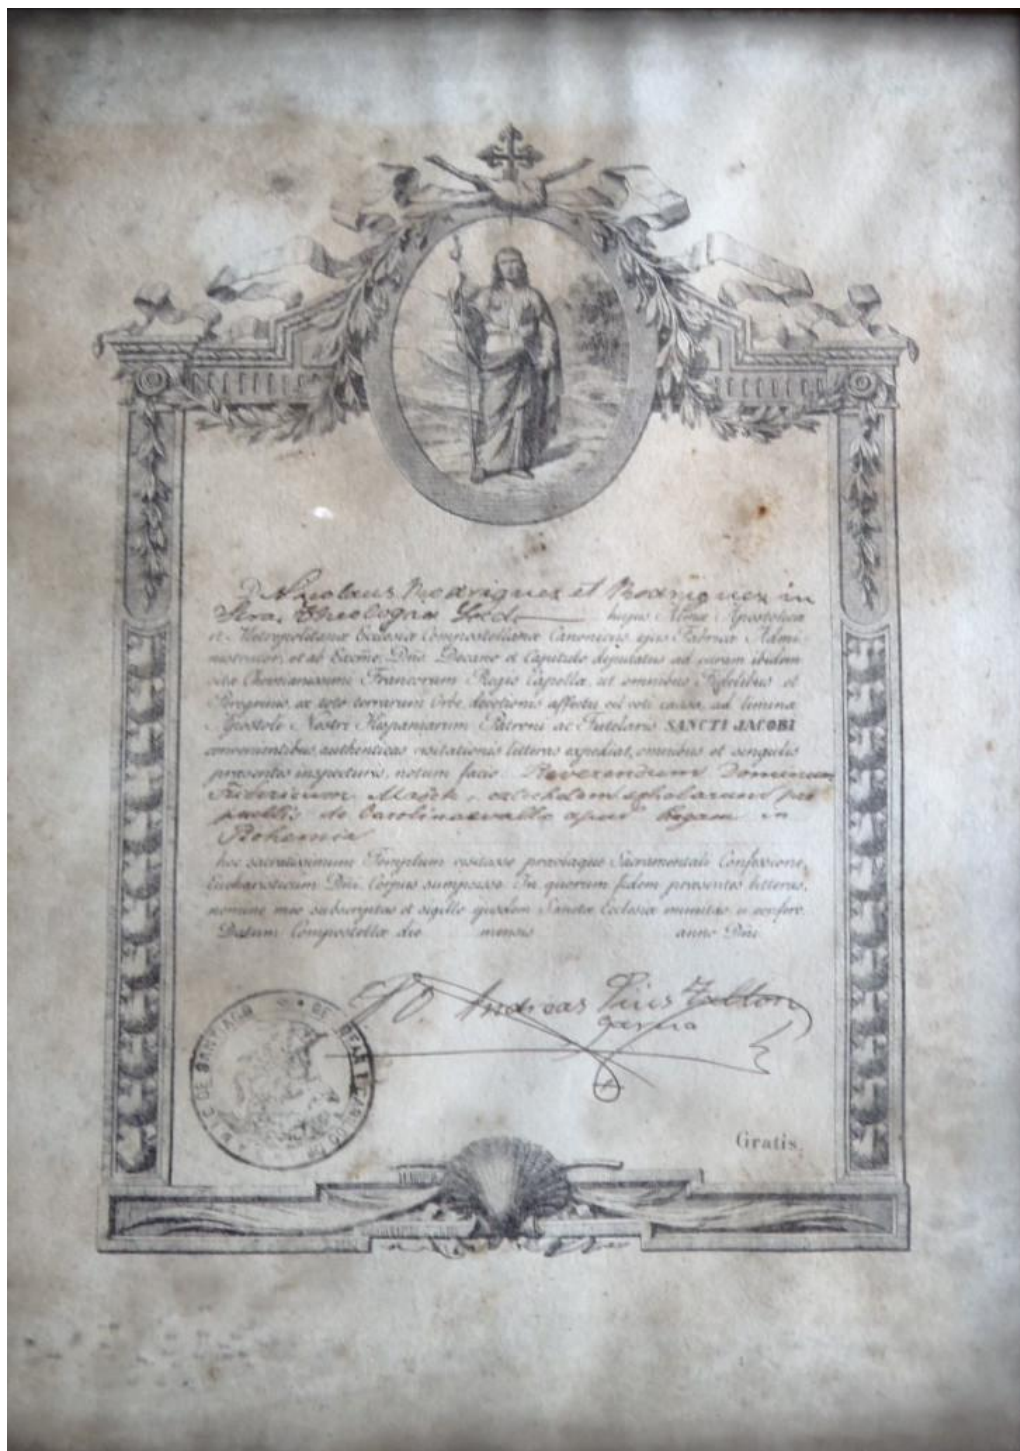 D. Nicolaus Rodriguez et Rodriguez in
Stra. Theologia Licd. hujus Almæ Apostolicæ
et Metropolitanæ Ecclesiæ Compostellanæ Canonicus, ejus Fabricæ Admi-
nistrator, et ab Excmo. Dño. Decano et Capitulo deputatus ad curam ibidem
sitæ Christianissimi Francorum Regis Capellæ, ut omnibus Fidelibus et
Peregrinis ex toto terrarum Orbe, devotionis affectu vel voti causa, ad limina
Apostoli Nostri Hispaniarum Patroni ac Tutelaris SANCTI JACOBI
convenientibus, authenticas visitationis litteras expediat, omnibus et singulis
præsentes inspecturis, notum facio: Reverendum Dominum
Fridericum catechetam scholarum pro
puellis de apud in
Bohemia
hoc sacratissimum Templum visitasse præviaque Sacramentali Confessione,
Eucharisticum Dñi. Corpus sumpsisse. In quorum fidem præsentes litteras,
nomine meo subscriptas et sigillo ejusdem Sanctæ Ecclesiæ munitas ei confero.
Datum Compostellæ die mensis anno Dñi
Andreas Pius
Garcia
DE SANTIAGO
Gratis.